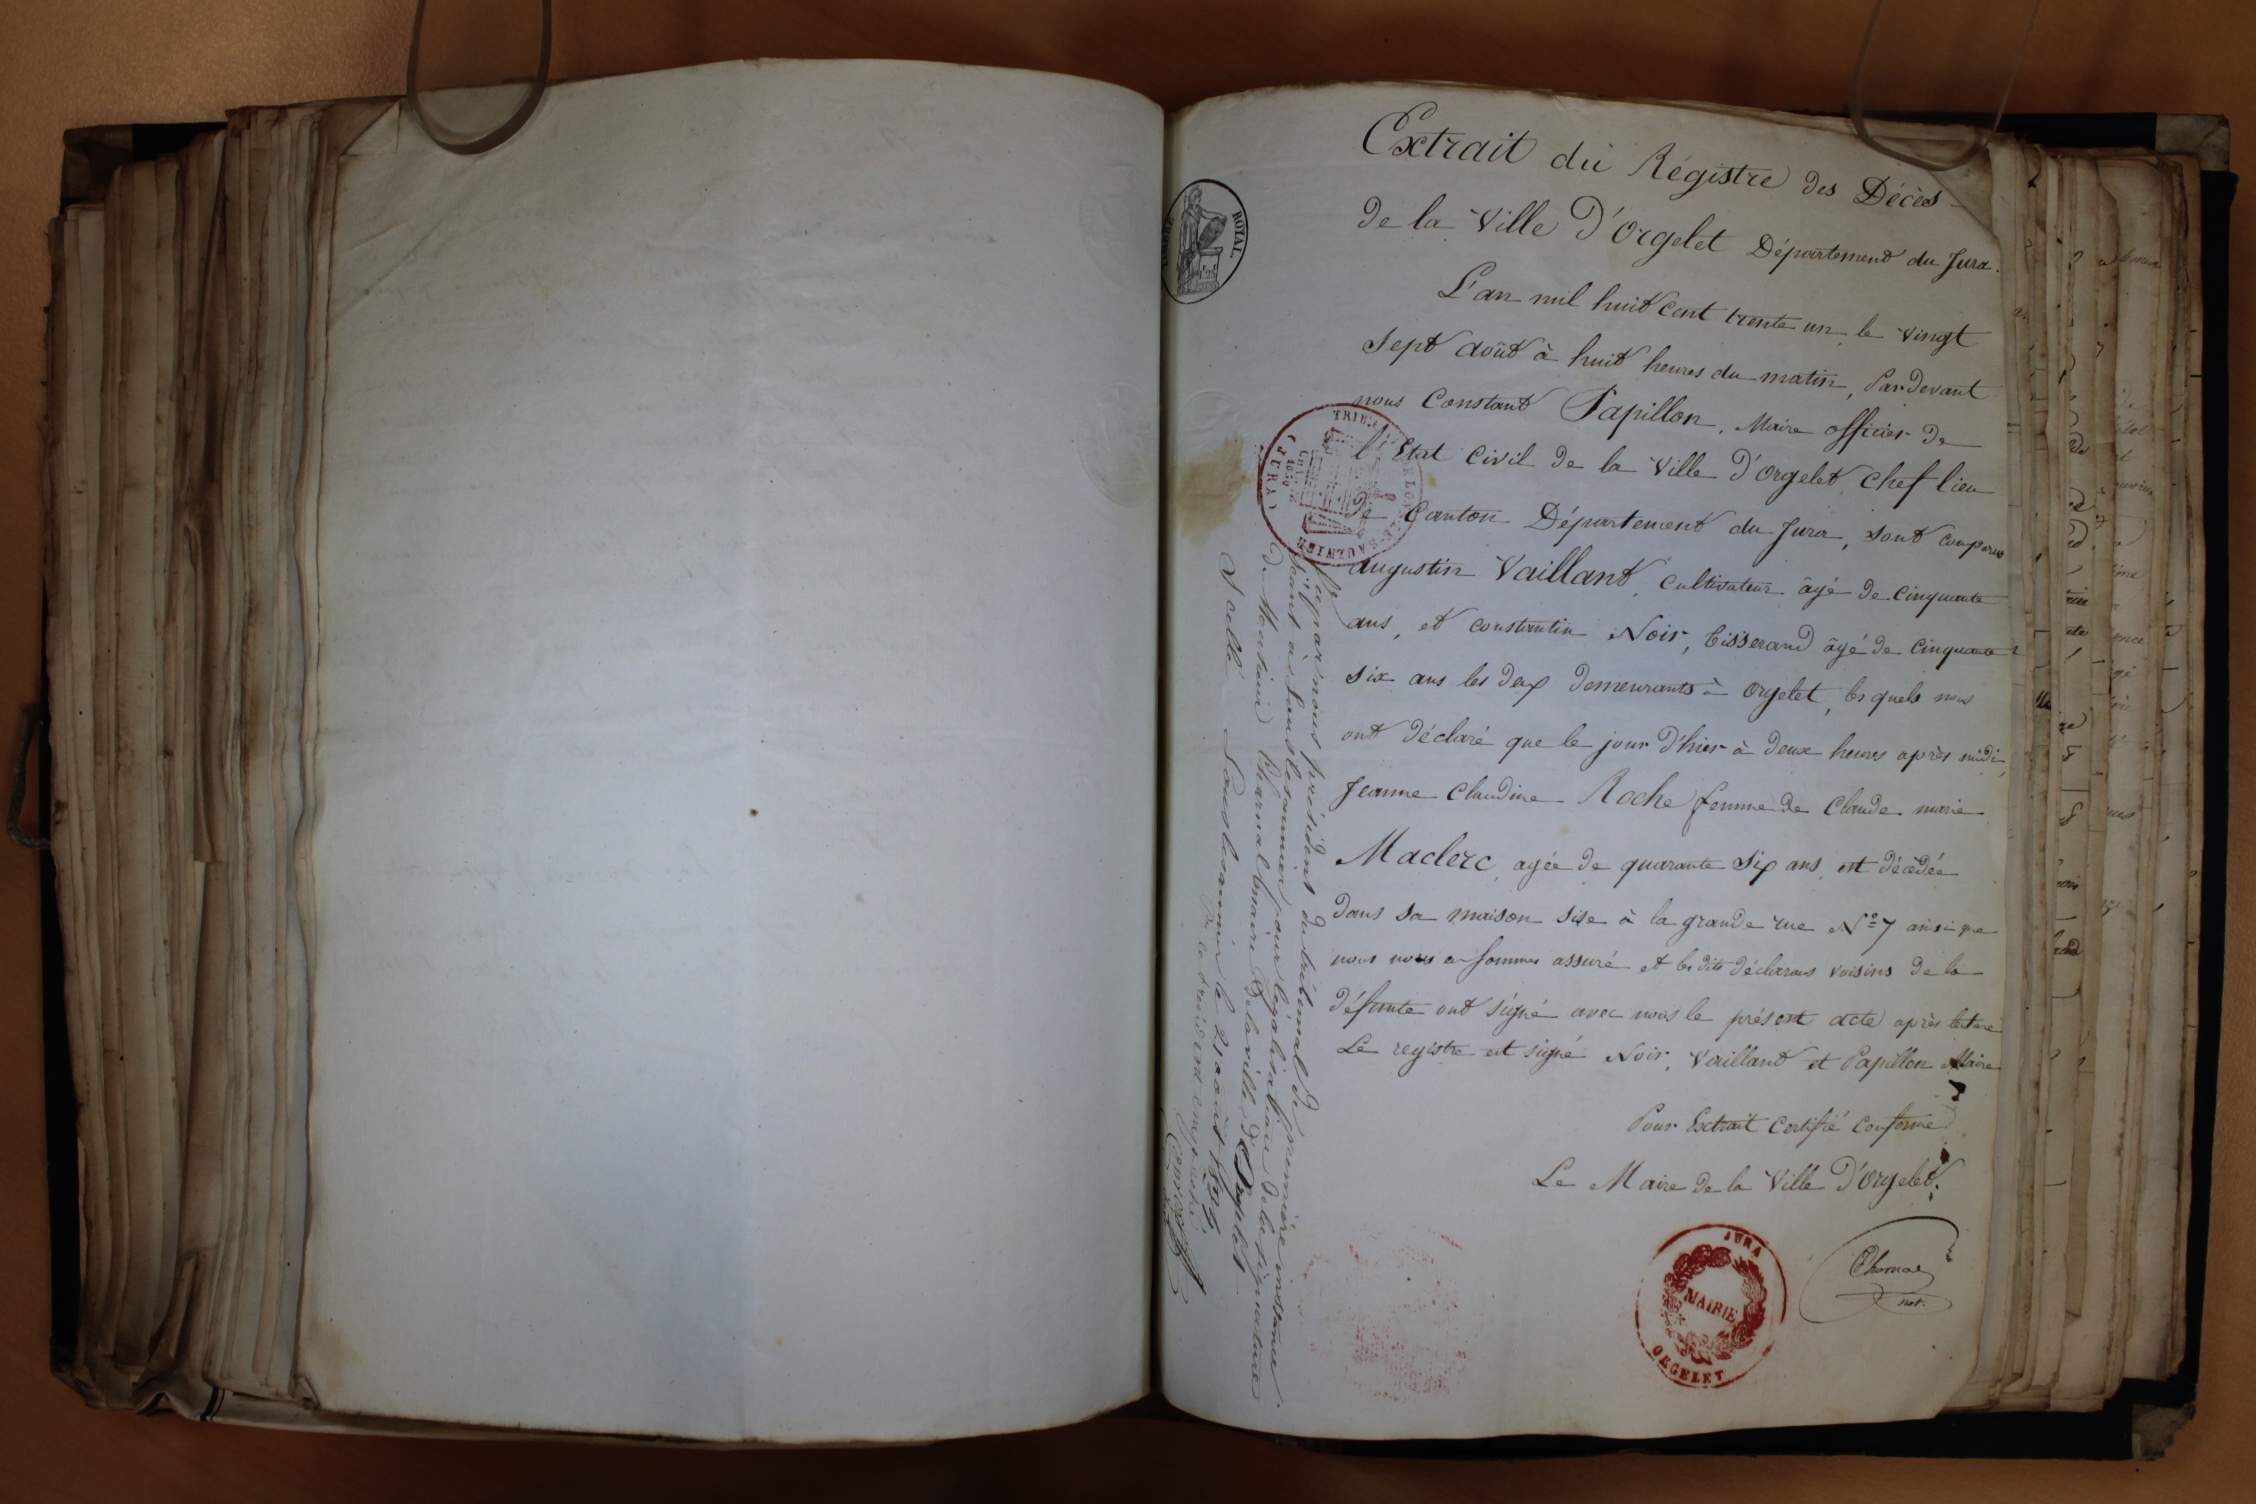 Extrait du Régistre des Décès
de la Ville d'Orgelet Département du Jura.
L'an mil huit cent trente un, le vingt
sept août à huit heures du matin, Par devant
nous Constant Papillon, Maire officier de
l'Etat civil de la Ville d'Orgelet chef lieu
de Canton Département du Jura, sont comparus
augustin Vaillant, cultivateur âgé de cinquante
ans, et constantin Noir, tisserand âgé de cinquante
six ans les deux demeurants à Orgelet, les quels nous
ont déclaré que le jour d'hier à deux heures après midi,
Jeanne Claudine Roche femme de Claude marie
Maclerc, agée de quarante six ans, est décédée
dans sa maison sise à la grande rue N° 7 ainsi que
nous nous en sommes assuré et les dits déclarans voisins de la
défunte ont signé avec nous le présent acte après lecture
Le registre est signé Noir, Vaillant et Papillon Maire
Pour Extrait Certifié Conforme
Le Maire de la Ville d'Orgelet.
Thomas
not.
JURA
MAIRIE
ORGELET
TIMBRE ROYAL
(JURA)
Vu par nous président du tribunal de première instance
séant à Lons le saunier pour légalisation de la signature
de Monsieur maire de la ville d'Orgelet
Scellé Lons le saunier le 21 août